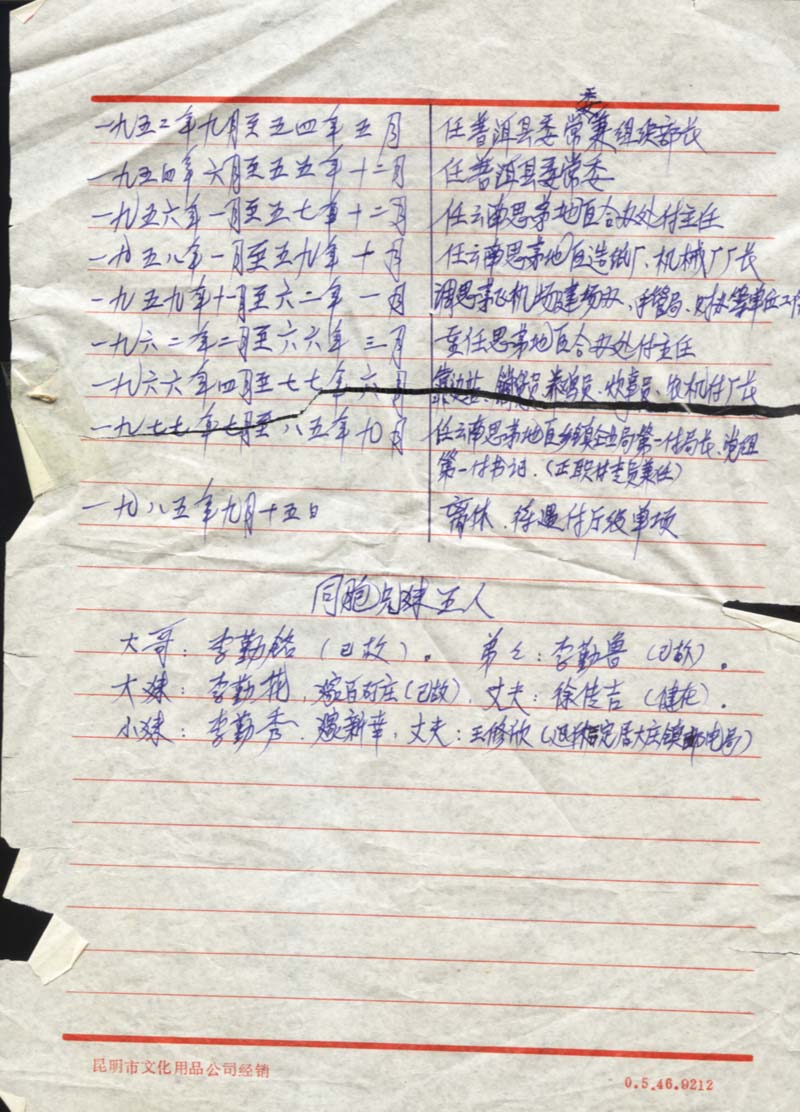 委
一九五二年九月至五四年五月 任普洱县委常兼组织部长
一九五四年六月至五五年十二月 任普洱县委常委
一九五六年一月至五七年十二月 任云南思茅地区合办处付主任
一九五八年一月至五九年十月 任云南思茅地区造纸厂、机械厂厂长
一九五九年十一月至六二年一月 调思茅飞机场建场办、手管局、财办等单位工作
一九六二年二月至六六年三月 重任思茅地区合办处付主任
一九六六年四月至七七年六月 靠边站、炊事员、农机付厂长
一九七七年七月至八五年九月 任云南思茅地区乡镇企业局第一付局长、党组
第一付书记.(正职
一九八五年九月十五日 离休.待遇付厅级单项
同胞兄妹五人
大哥:李勤铭(已故)。 弟弟:李勤鲁(已故).
大妹:李勤花,嫁百时庄(已故),丈夫:徐传吉(健在).
小妹:李勤秀.嫁新幸,丈夫:王修欣(退休后定居大庄镇邮电局)
昆明市文化用品公司经销
0.5.46.9212